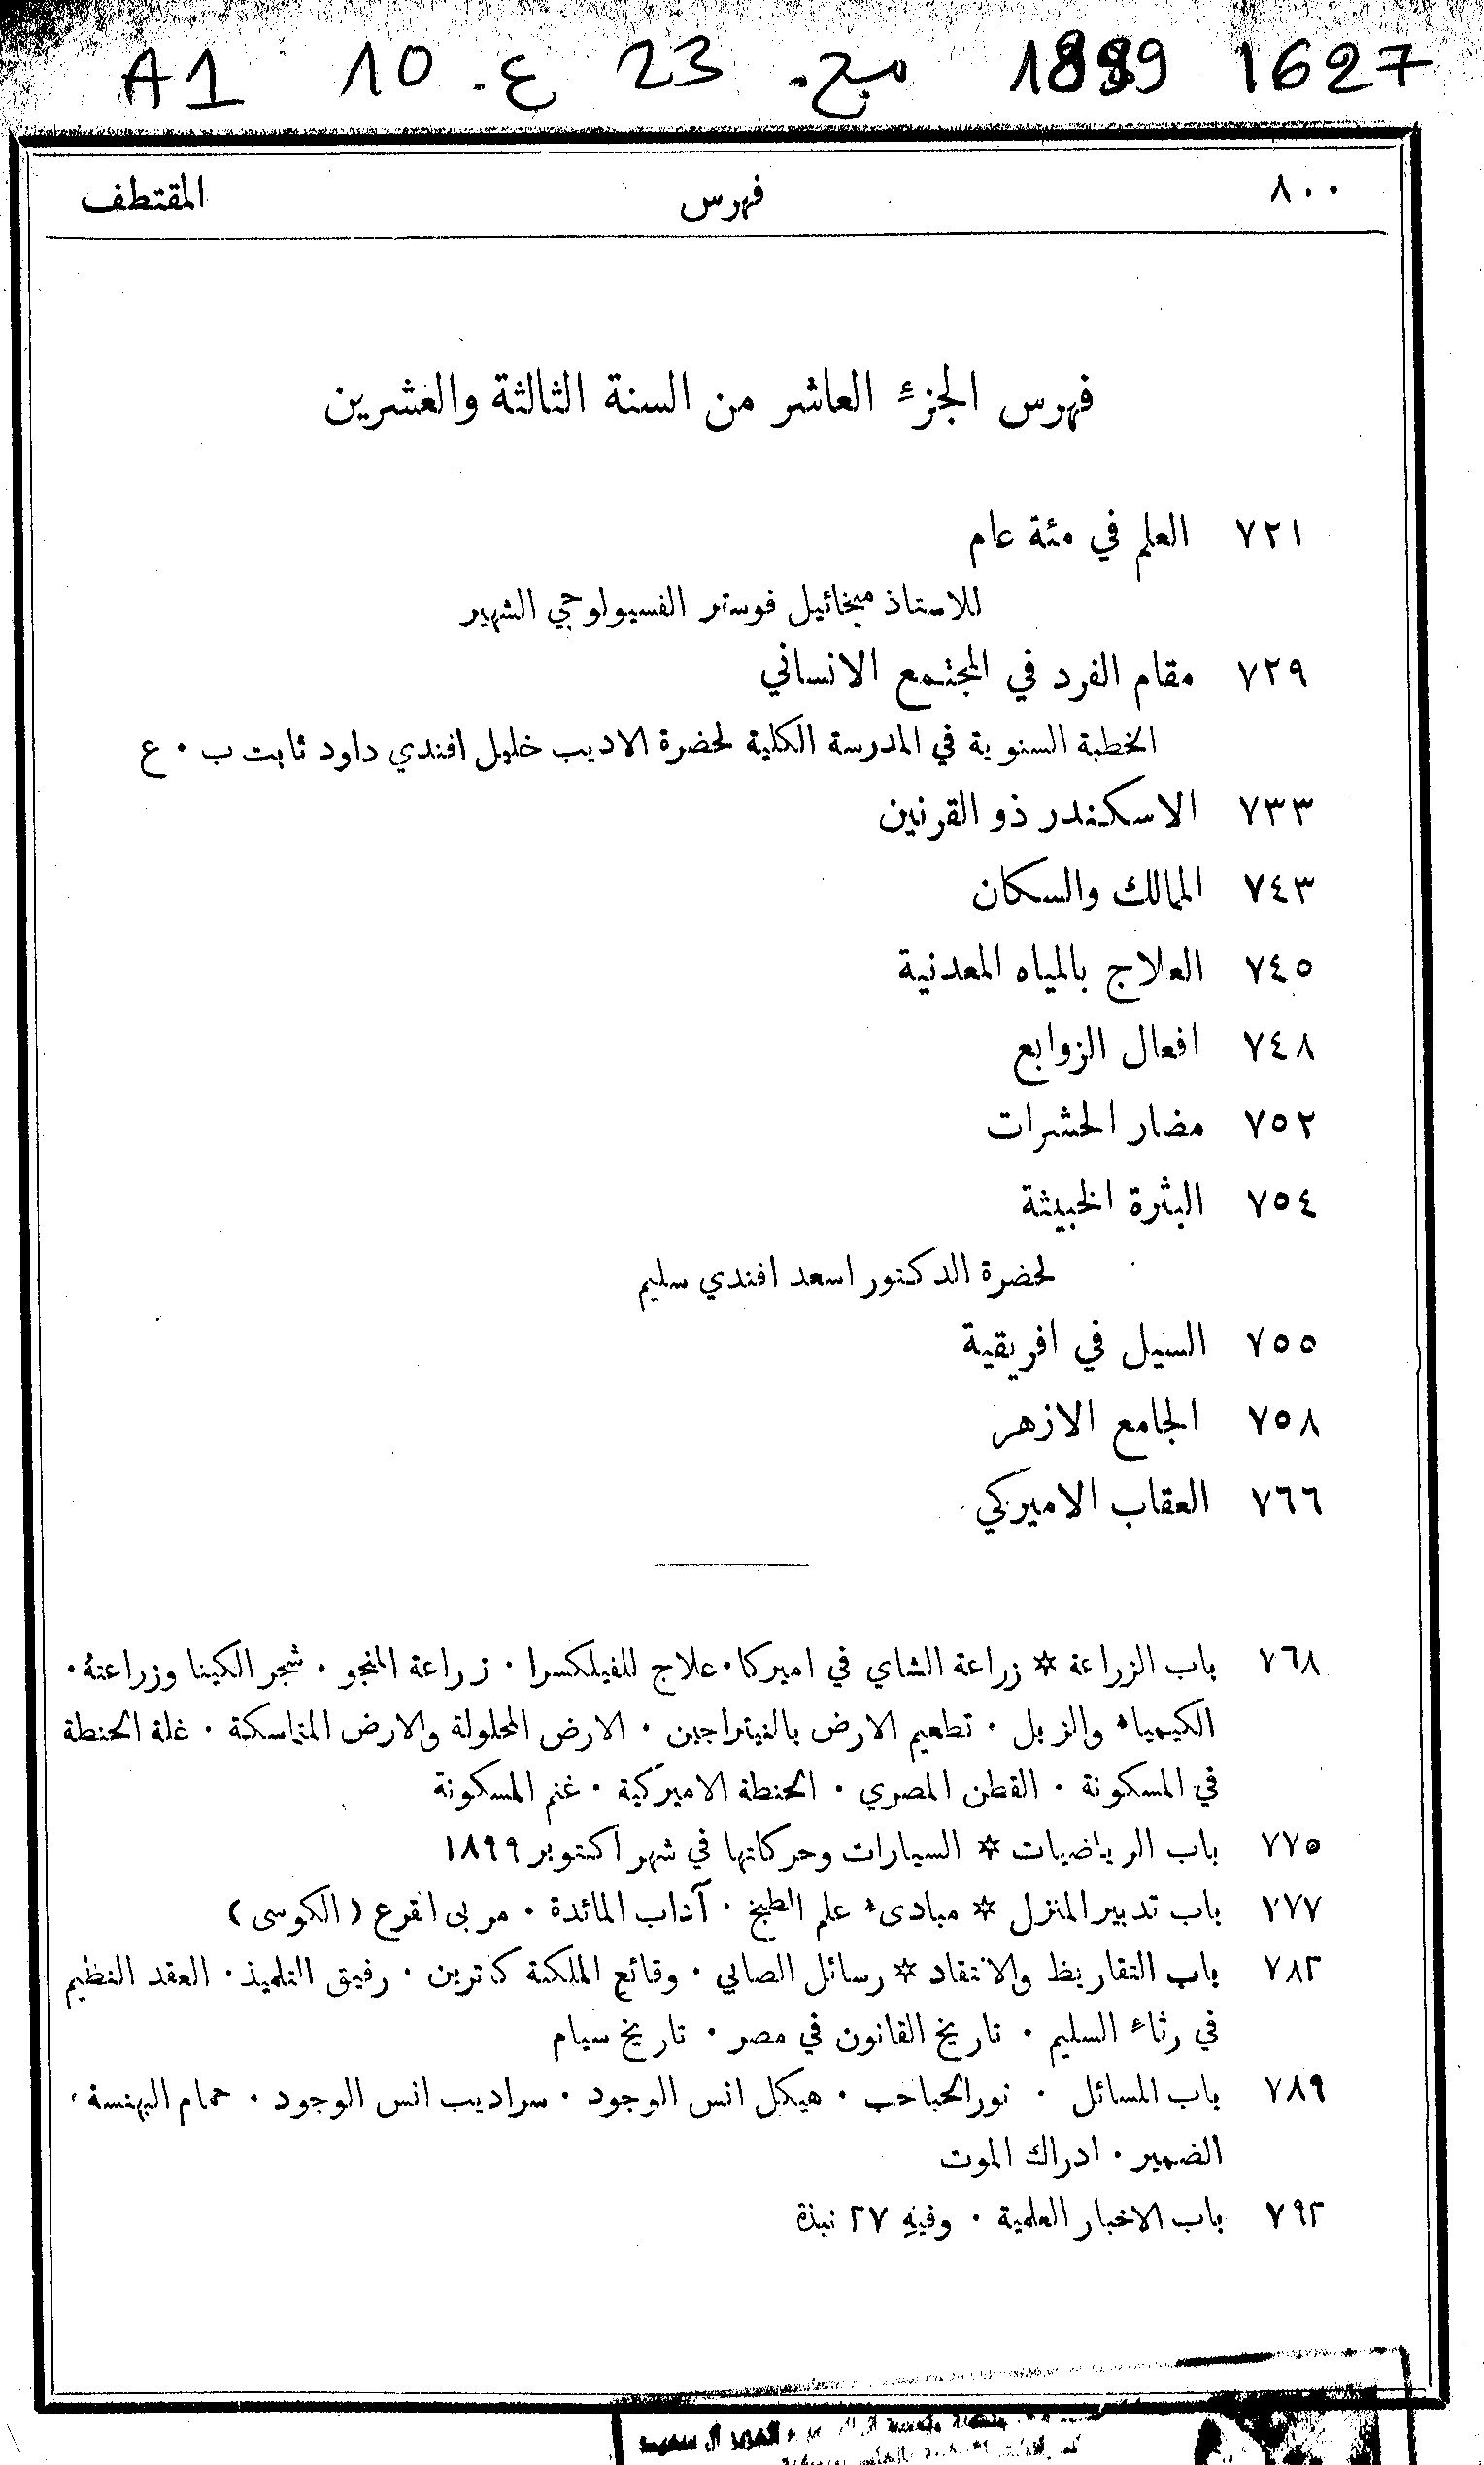 A1 10 ع. 23 مج. 1899 1627
٨٠٠ فهرس المقتطف
فهرس الجزء العاشر من السنة الثالثة والعشرين
٧٢١ العلم في مئة عام
للاستاذ ميخائيل فوستر الفسيولوجي الشهير
٧٢٩ مقام الفرد في المجتمع الانساني
الخطبة السنوية في المدرسة الكلية لحضرة الاديب خليل افندي داود ثابت ب ٠ ع
٧٣٣ الاسكندر ذو القرنين
٧٤٣ الممالك والسكان
٧٤٥ العلاج بالمياه المعدنية
٧٤٨ افعال الزوابع
٧٥٢ مضار الحشرات
٧٥٤ البثرة الخبيثة
لحضرة الدكتور اسعد افندي سليم
٧٥٥ السيل في افريقية
٧٥٨ الجامع الازهر
٧٦٦ العقاب الاميركي
٧٦٨ باب الزراعة * زراعة الشاي في اميركا ٠ علاج للفيلكسرا ٠ زراعة المنجو ٠ شجر الكينا وزراعته ٠
الكيمياء والزبل ٠ تطعيم الارض بالنيتراجين ٠ الارض المحلولة والارض المتماسكة ٠ غلة الحنطة
في المسكونة ٠ القطن المصري ٠ الحنطة الاميركية ٠ غنم المسكونة
٧٧٥ باب الرياضيات * السيارات وحركاتها في شهر اكتوبر ١٨٩٩
٧٧٧ باب تدبير المنزل * مبادىء علم الطبخ ٠ آداب المائدة ٠ مربى القرع (الكوسى)
٧٨٢ باب التقاريظ والانتقاد * رسائل الصابي ٠ وقائع الملكة كاترين ٠ رفيق التلميذ ٠ العقد النظيم
في رثاء السليم ٠ تاريخ القانون في مصر ٠ تاريخ سيام
٧٨٩ باب المسائل ٠ نور الحباحب ٠ هيكل انس الوجود ٠ سراديب انس الوجود ٠ حمام البهنسة ٠
الضمير ٠ ادراك الموت
٧٩٢ باب الاخبار العلمية ٠ وفيهِ ٢٧ نبذة